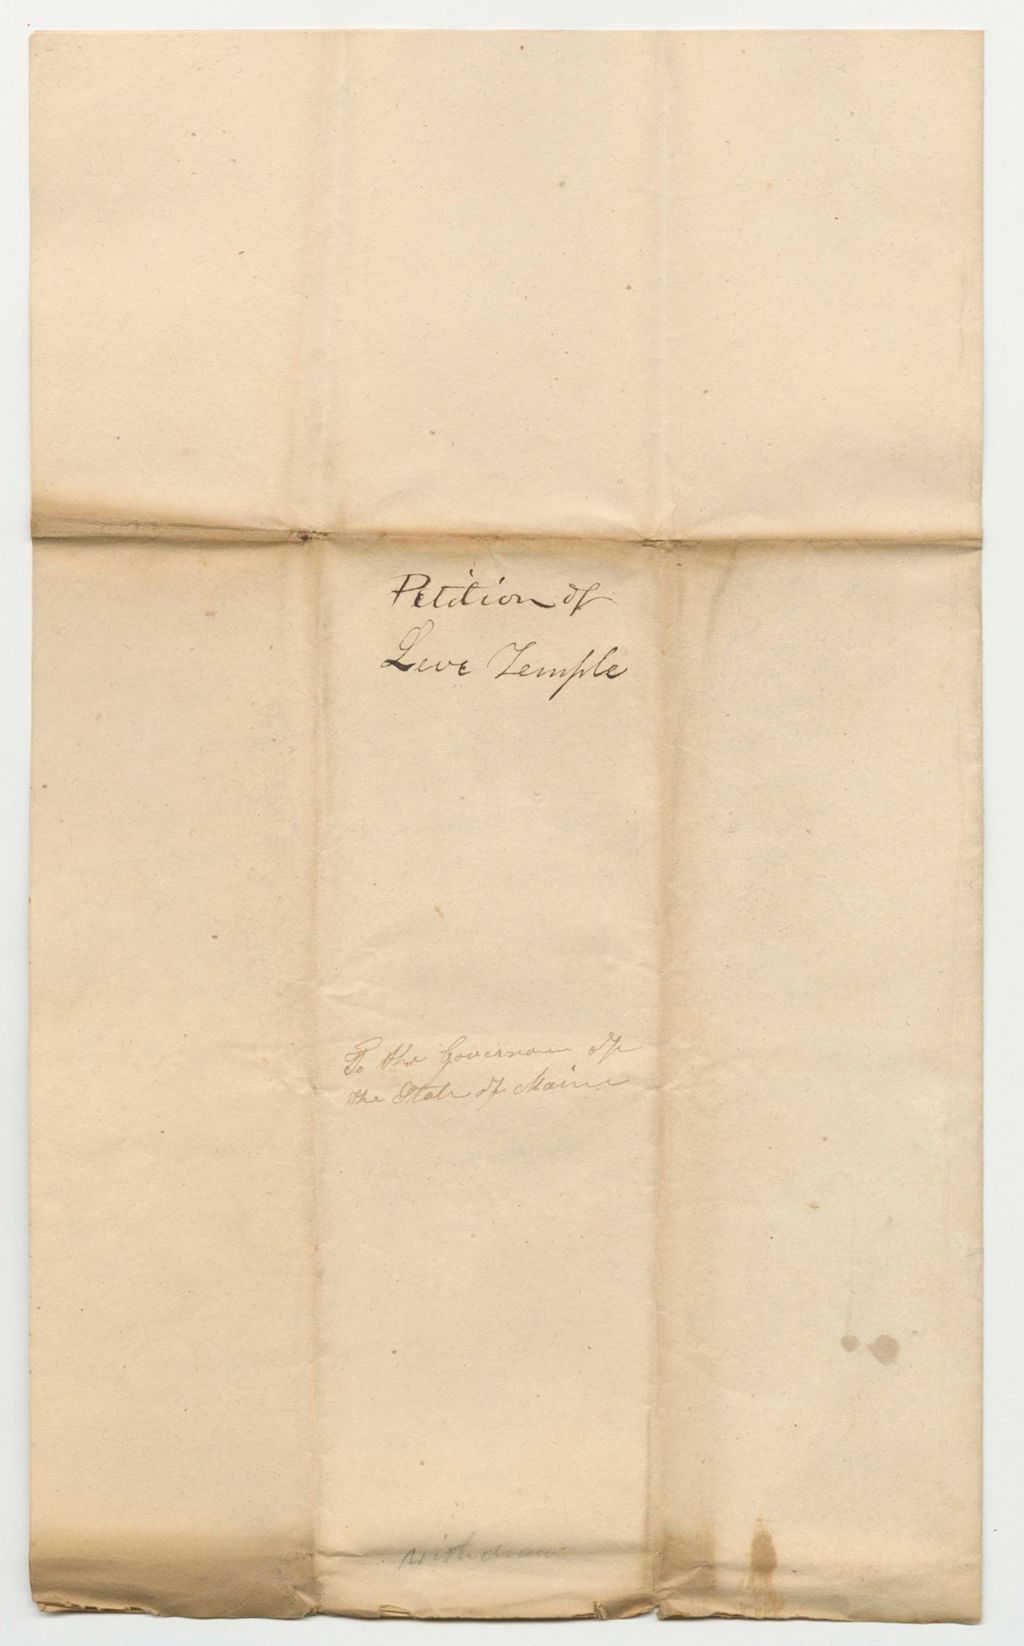 Petition of
Leve Temple
To the Governour of
the State of Maine
withdrawn